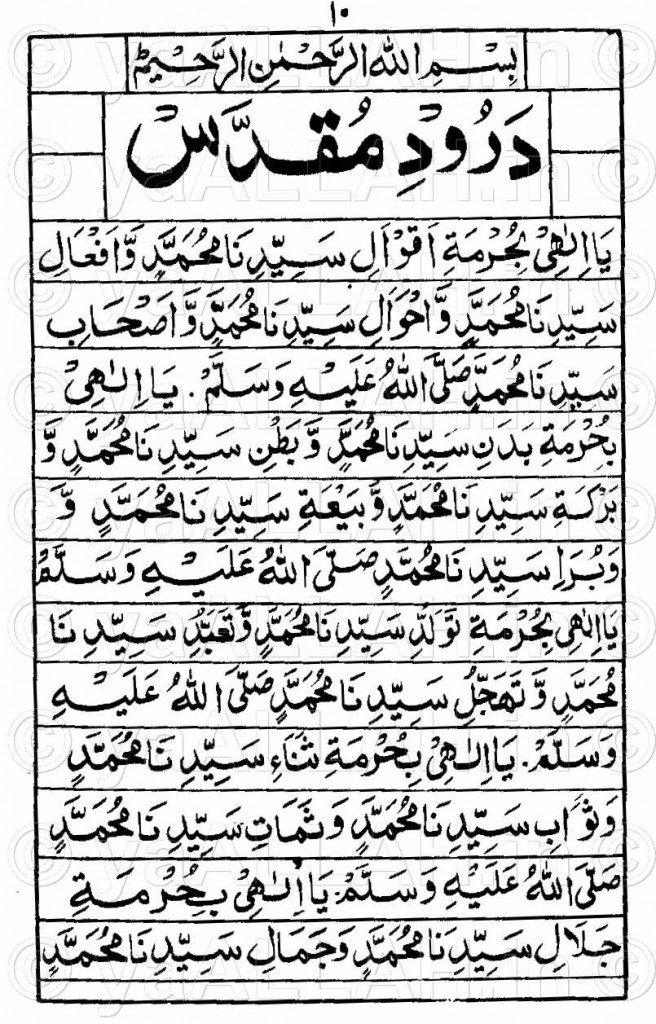 ١٠
بِسْمِ اللهِ الرَّحْمٰنِ الرَّحِيْمِ
دَرُوْدِ مُقَدَّس
يَا اِلٰهِيْ بِحُرْمَةِ اَقْوَالِ سَيِّدِنَا مُحَمَّدٍ وَّاَفْعَالِ
سَيِّدِنَا مُحَمَّدٍ وَّاَحْوَالِ سَيِّدِنَا مُحَمَّدٍ وَّاَصْحَابِ
سَيِّدِنَا مُحَمَّدٍ صَلَّى اللهُ عَلَيْهِ وَسَلَّمْ. يَا اِلٰهِيْ
بِحُرْمَةِ بَدَنِ سَيِّدِنَا مُحَمَّدٍ وَّبَطْنِ سَيِّدِنَا مُحَمَّدٍ وَّ
بَرْكَةِ سَيِّدِنَا مُحَمَّدٍ وَّبَيْعَةِ سَيِّدِنَا مُحَمَّدٍ وَّ
وَبُرَاِ سَيِّدِنَا مُحَمَّدٍ صَلَّى اللهُ عَلَيْهِ وَسَلَّمْ
يَا اِلٰهِيْ بِحُرْمَةِ تَوَلُّدِ سَيِّدِنَا مُحَمَّدٍ وَّتَعَبُّدِ سَيِّدِنَا
مُحَمَّدٍ وَّتَهَجُّلِ سَيِّدِنَا مُحَمَّدٍ صَلَّى اللهُ عَلَيْهِ
وَسَلَّمْ. يَا اِلٰهِيْ بِحُرْمَةِ ثَنَاءِ سَيِّدِنَا مُحَمَّدٍ
وَثَوَابِ سَيِّدِنَا مُحَمَّدٍ وَثَمَاتِ سَيِّدِنَا مُحَمَّدٍ
صَلَّى اللهُ عَلَيْهِ وَسَلَّمْ. يَا اِلٰهِيْ بِحُرْمَةِ
جَلَالِ سَيِّدِنَا مُحَمَّدٍ وَجَمَالِ سَيِّدِنَا مُحَمَّدٍ
© yaALLAH.in